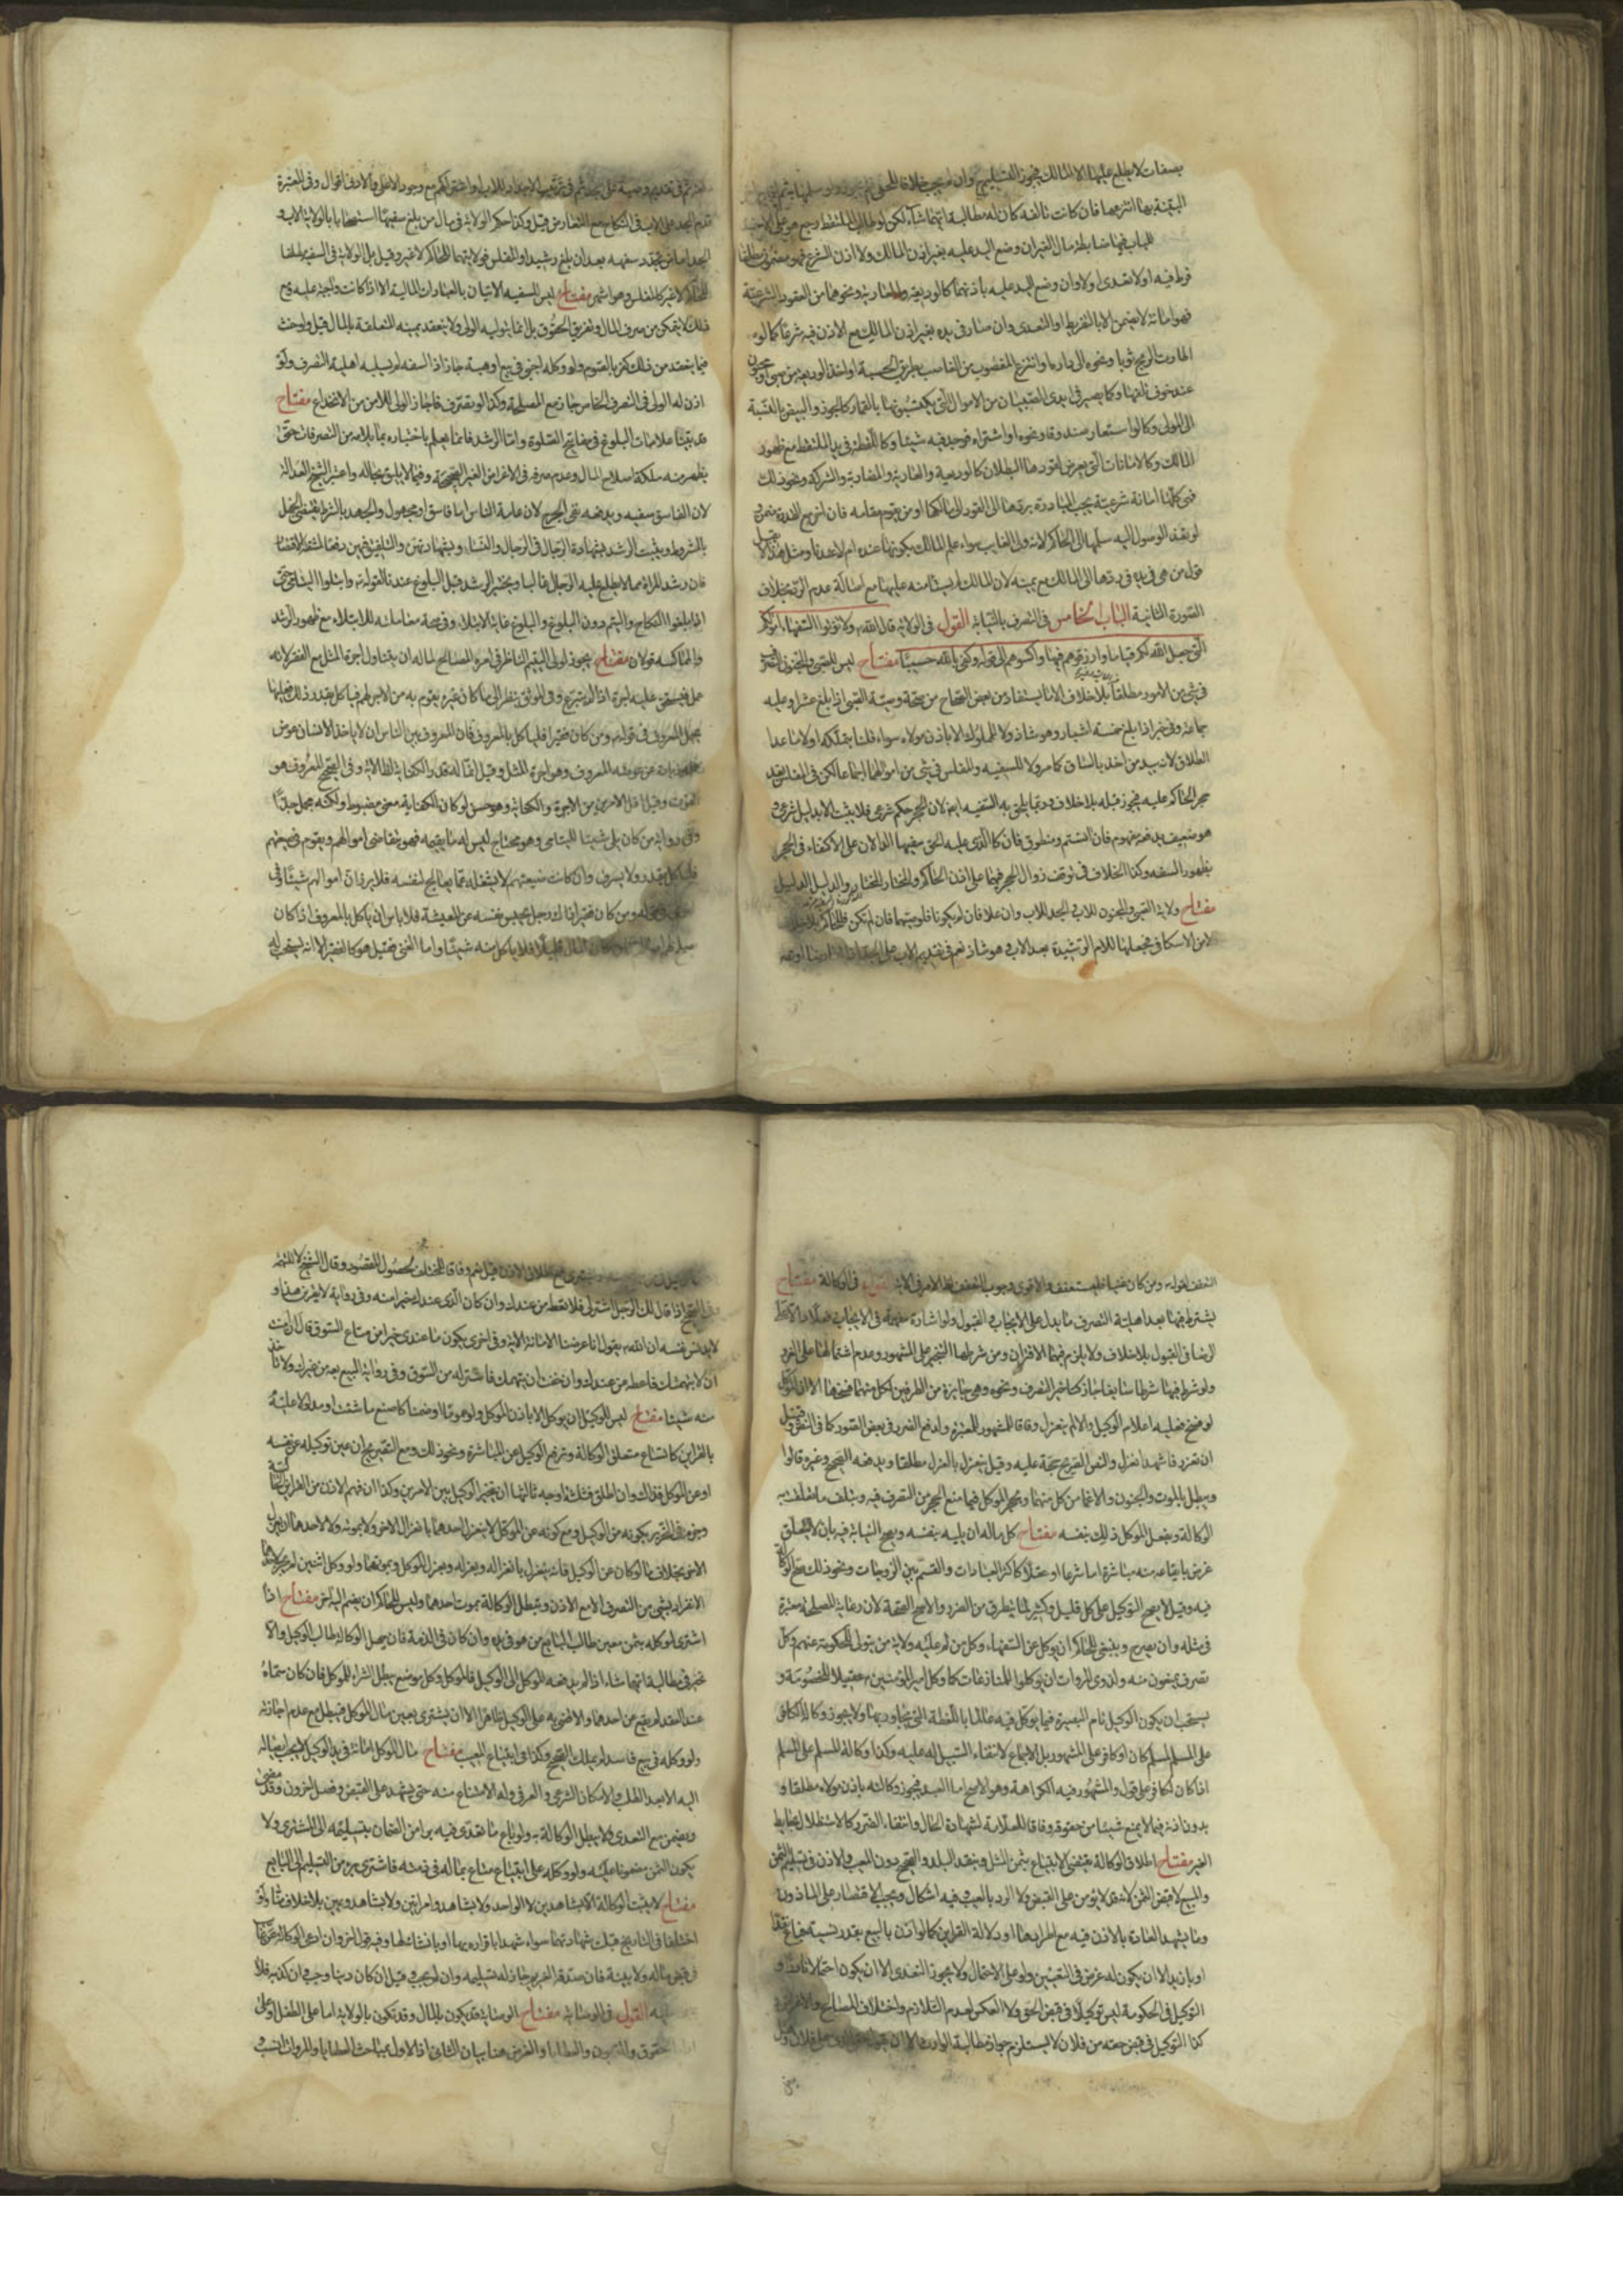 بصفات لا يطلع عليها الا المالك فيجوز التسليم وان لم يجب خلافا للحلي
البينة بها انتزعها فان كانت تالفة كان له مطالبة ايهما شاء لكن لو طالب الملتقط رجع هو على الاخذ
للباب فيها ضابطة مال الغير ان وضع اليد عليه بغير اذن المالك ولا اذن الشرع فهو مضمون مطلقا
فرط فيه او لا تعدى او لا وان وضع اليد عليه باذنهما كالوديعة والمضاربة ونحوهما من العقود الشرعية
فهو امانة لا يضمن الا بالتفريط او التعدى وان صار فى يده بغير اذن المالك مع الاذن فيه شرعا كما لو
اطارت الريح ثوبا ونحوه الى داره او انتزع المغصوب من الغاصب بطريق الحسبة او اخذ الوديعة من صبى او مجنون
عند خوف تلفها وكما يصير فى يدى الصبيان من الاموال التى يكتسبونها بالقمار كالجوز والبيض بالنسبة
الى الولى وكما لو استعار صندوقا ونحوه او اشتراه فوجد فيه شيئا وكاللقطة فى يد الملتقط مع ظهور
المالك وكالامانات التى يعرض لعقودها البطلان كالوديعة والعارية والمضاربة والشركة ونحو ذلك
فهى كلها امانة شرعية يجب المبادرة بردها الى الفور الى مالكها او من يقوم مقامه فان اخر مع القدرة ضمن و
لو تعذر الوصول اليه سلمها الى الحاكم لانه ولى الغايب سواء علم المالك بكونها عنده ام لا عندنا ومثل هذا لا يقبل
قول من هى فى يده فى ردها الى المالك مع يمينه لان المالك لم يستامنه عليها مع اصالة عدم الرد بخلاف
الصورة الثانية الباب الخامس فى التصرف بالنيابة القول فى الولاية قال الله ولا تؤتوا السفهاء اموالكم
التى جعل الله لكم قياما وارزقوهم فيها واكسوهم الى قوله وكفى بالله حسيبا مفتاح ليس للصبى والمجنون التصرف
فى شئ من الامور مطلقا بلا خلاف الا ما يستفاد من بعض الصحاح من صحة وصية الصبى اذا بلغ عشرا وعليه
جماعة وفى خبر اذا بلغ خمسة اشبار وهو شاذ ولا للمملوك الا باذن مولاه سواء قلنا بتملكه او لا ما عدا
الطلاق لانه بيد من اخذ بالساق كما مر ولا للسفيه والمفلس فى شئ من اموالهما اجماعا لكن فى المفلس بعد
حجر الحاكم عليه فيجوز قبله بلا خلاف وربما يلحق به السفيه ايضا لان الحجر حكم شرعى فلا يثبت الا بدليل شرعى و
هو ضعيف يدفعه مفهوم فان انستم ومنطوق فان كان الذى عليه الحق سفيها الدالان على الاكتفاء فى الحجر
بظهور السفه وكذا الخلاف فى توقف زوال الحجر فيهما على اذن الحاكم والمختار المختار والدليل الدليل
مفتاح ولاية الصبى والمجنون للاب والجد للاب وان علا فان لم يكونا فلوصيهما فان لم تكن فللحاكم
لابن الاسكافى فجعلها للام الرشيدة بعد الاب وهو شاذ نعم فى تقديم الاب على الجد
ثم فى تقديم وصية على
تقدم الجد على الاب فى النكاح مع التعارض قيل وكذا حكم الولاية فى مال من بلغ سفيها استصحابا بالولاية الاب و
الجد اما من تجدد سفهه بعد ان بلغ رشيدا والمفلس فولايتهما للحاكم لا غير وقيل بل الولاية فى السفيه مطلقا
للحاكم لا غير كالمفلس وهو اشهر مفتاح ليس للسفيه الاتيان بالعبادات المالية الا اذا كانت واجبة عليه ومع
ذلك لا يتمكن من صرف المال وتفريق الحقوق بل انما يتوليه الولى ولا ينعقد يمينه المتعلقة بالمال قيل ولو حنث
فيما ينعقد من ذلك كفر بالصوم ولو وكله اجنبى فى بيع او هبة جاز اذ السفه لم يسلبه اهلية التصرف ولو
اذن له الولى فى التصرف الخاص جاز مع المصلحة وكذا لو تصرف فاجاز الولى للامن من الانخداع مفتاح
قد بينا علامات البلوغ فى مفاتيح الصلوة واما الرشد فانما يعلم باختباره بما يلايمه من التصرفات حتى
يظهر منه ملكة اصلاح المال وعدم صرفه فى الاغراض الغير الصحيحة وفيما لا يليق بحاله واعتبر الشيخ العدالة
لان الفاسق سفيه ويدفعه نفى الحرج لان عامة الناس اما فاسق او مجهول والجهل بالشرط يقتضى الجهل
بالمشروط ويثبت الرشد بشهادة الرجال فى الرجال والنساء وبشهادتهن والتلفيق فيهن دفعا لمشقة الاقتصار
فان رشد المراة مما لا يطلع عليه الرجال غالبا ويختبر الرشد قبل البلوغ عندنا لقوله وابتلوا اليتامى حتى
اذا بلغوا النكاح واليتم دون البلوغ والبلوغ غاية الابتلاء وفى صحة معاملته للابتلاء مع ظهور الرشد
والمماكسة قولان مفتاح يجوز لولى اليتيم الناظر فى امره المصالح لماله ان يتناول اجرة المثل مع الفقر لانه
عمل فيستحق عليه اجرة اذا لم يتبرع وفى الموثق ينظر الى ما كان غيره يقوم به من الاجر لهم فياكل بقدر ذلك
يحمل المعروف فى قوله ومن كان فقيرا فلياكل بالمعروف فان المعروف بين الناس ان لا ياخذ الانسان عوض
عن عوضه المعروف وهو اجرة المثل وقيل انما له قدر الكفاية لظ الاية وفى الصحيح المعروف هو
القوت وقيل اقل الامرين من الاجرة والكفاية وهو حسن لو كان الكفاية معنى مضبوط ولكنه مجمل جدا
وفى رواية من كان يلى شيئا لليتامى وهو محتاج ليس له ما يقيمه فهو يتقاضى اموالهم ويقوم فى ضيعتهم
فلياكل بقدر ولا يسرف وان كانت ضيعتهم لا تشغله عما يعالج لنفسه فلا يرزان اموالهم شيئا وفى
ومن كان فقيرا ذاك رجل يحبس نفسه عن المعيشة فلا باس ان ياكل بالمعروف اذا كان
كان المال قليلا فلا ياكل منه شيئا واما الغنى فقيل هو كالفقير الا انه يستحب له
التعفف لقوله ومن كان غنيا فليستعفف والاقوى وجوب التعفف لظ الامر فى الاية القول فى الوكالة مفتاح
يشترط فيها بعد اهلية التصرف ما يدل على الايجاب والقبول ولو اشارة مفهمة فى الايجاب
الرضا فى القبول بلا خلاف ولا يلزم فيهما الاقتران ومن شرطها التنجيز على المشهور وعدم اشتمالها على الغرر
ولو شرط فيها شرطا سايغا جاز كتاخير التصرف ونحوه وهى جايزة من الطرفين لكل منهما فسخها الا ان الموكل
لو فسخ فعليه اعلام الوكيل والا لم ينعزل وفاقا للمشهور للمعتبرة ولدفع الضرر فى بعض الصور كما فى النص وقيل
ان تعذر فاشهد انعزل والنص الصريح حجة عليه وقيل ينعزل بالعزل مطلقا ويدفعه الصحيح وغيره قالوا
ويبطل بالموت والجنون والاغما من كل منهما وبحجر الموكل فيما منع الحجر من التصرف فيه وبتلف ما تعلقت به
الوكالة وبفعل الموكل ذلك بنفسه مفتاح كل ماله ان يليه بنفسه ويصح النيابة فيه بان لا يتعلق
غرض بايقاعه منه مباشرة اما شرعا او عقلا كاكثر العبادات والقسم بين الزوجات ونحو ذلك صح الوكالة
فيه وقيل لا يصح التوكيل على كل قليل وكثير لما يتطرق من الضرر والاصح الصحة لان رعاية المصلحة معتبرة
فى مثله وان يصرح وينبغى للحاكم ان يوكل عن السفهاء وكل من له عليه ولاية من يتولى الحكومة عنهم وكل
تصرف يمنعون منه ولذوى المروات ان يوكلوا المنازعات كما وكل امير المؤمنين عقيلا للخصومة و
يستحب ان يكون الوكيل تام البصيرة فيما يوكل فيه عالما باللغة التى يحاور بها ولا يجوز وكالة الكافر
على المسلم لمسلم كان او كافر على المشهور بل الاجماع لانتفاء السبيل له عليه وكذا وكالة المسلم على المسلم
اذا كان لكافر على قول والمشهور فيه الكراهة وهو الاصح اما العبد فيجوز وكالته باذن مولاه مطلقا و
بدون اذنه فيما لا يمنع شيئا من حقوقه وفاقا للعلامة لشهادة الحال وانتفاء الضرر كالاستظلال بحايط
الغير مفتاح اطلاق الوكالة يقتضى الابتياع بثمن المثل وبنقد البلد والصحيح دون المعيب والاذن فى تسليم الثمن
والمبيع لا قبض الثمن لانه قد لا يؤمن على القبض ولا الرد بالعيب وفيه اشكال ويجب الاقتصار على الماذون
وما يشهد العادة بالاذن فيه مع اطرادها او دلالة القراين كما لو اذن بالبيع بقدر نسية فباع نقدا
او بازيد الا ان يكون له غرض فى التعيين ولو على الاحتمال ولا يجوز التعدى الا ان يكون احتمالا نادرا و
التوكيل فى الحكومة ليس توكيلا فى قبض الحق ولا العكس لعدم التلازم واختلاف المصالح والاغراض و
كذا التوكيل فى قبض حقه من فلان لا يستلزم جواز مطالبة الوارث الا ان يقول
مع اطلاق الاذن قيل نعم وفاقا للمختلف لحصول المقصود وقال الشيخ لا للتهمة
وفى الصحيح اذا قال لك الرجل اشتر لى فلا تعطه من عندك وان كان الذى عندك خيرا منه وفى رواية لا يقربن هذا و
لا يدنس نفسه ان الله يقول انا عرضنا الامانة الاية وفى اخرى يكون ما عندى خيرا من متاع السوق قال ان امنت
ان لا يتهمك فاعطه من عندك وان خفت ان يتهمك فاشتر له من السوق وفى رواية البيع بعه من غيرك ولا تاخذ
منه شيئا مفتاح ليس للوكيل ان يوكل الا باذن الموكل ولو عموما او ضمنا كاصنع ما شئت او مدلولا عليه
بالقراين كاتساع متعلق الوكالة وترفع الوكيل عن المباشرة ونحو ذلك ومع التصريح ان عين توكيله عن نفسه
او عن الموكل فذاك وان اطلق فثلثة اوجه ثالثها ان يتخير الوكيل بين الامرين وكذا ان فهم الاذن من القراين
وجزم فى التحرير بكونه من الوكيل ومع كونه عن الموكل لا ينعزل احدهما بانعزال الاخر ولا بموته ولا لاحدهما ان يعزل
الاخر بخلاف ما لو كان عن الوكيل فانه ينعزل بانعزاله وبعزله وبعزل الموكل وبموتهما ولو وكل اثنين لم يجز لاحدهما
الانفراد بشئ من التصرف الا مع الاذن وتبطل الوكالة بموت احدهما وليس للحاكم ان يضم اليه اخر مفتاح اذا
اشترى لموكله بثمن معين طالب البايع من هو فى يده وان كان فى الذمة فان جهل الوكالة طالب الوكيل والا
تخير فى مطالبة ايهما شاء اذا لم يدفعه الموكل الى الوكيل فالموكل وكل موضع يبطل الشراء للموكل فان كان سماه
عند العقد لم يقع عن احدهما والا قضى به على الوكيل ظاهرا الا ان يشترى بعين مال الموكل فيبطل مع عدم اجازته
ولو وكله فى بيع فاسد لم يملك الصحيح وكذا فى ابتياع المعيب مفتاح مال الموكل امانة فى يد الوكيل لا يجب ايصاله
اليه الا بعد الطلب والامكان الشرعى والعرفى وله الامتناع منه حتى يشهد على القبض وفصل اخرون وقد مضى
ويضمن مع التعدى ولا يبطل الوكالة به ولو باع ما تعدى فيه برا من الضمان بتسليمه الى المشترى ولا
يكون الثمن مضمونا عليه ولو وكله على ابتياع متاع بماله فى ذمته فاشترى برئ من التسليم الى البايع
مفتاح لا يثبت الوكالة الا بشاهدين لا الواحد ولا بشاهد وامراتين ولا بشاهد ويمين بلا خلاف منا ولو
اختلفا فى التاريخ قبلت شهادتهما سواء شهدا باقراره بها او بانشائها وفيه قول اخر وان ادعى الوكالة عن غايب
فى قبض ماله ولا بينة فان صدقه الغريم جاز له تسليمه وان لم يجب وقيل ان كان دينا وجب وان كذبه فلا
القول فى الوصاية مفتاح الوصاية قد يكون بالمال وقد تكون بالولاية اما على الطفل او على
حقوق والديون والعطايا والغرض هنا بيان الثانى اذ الاول بمباحث العطايا والمروات انسب